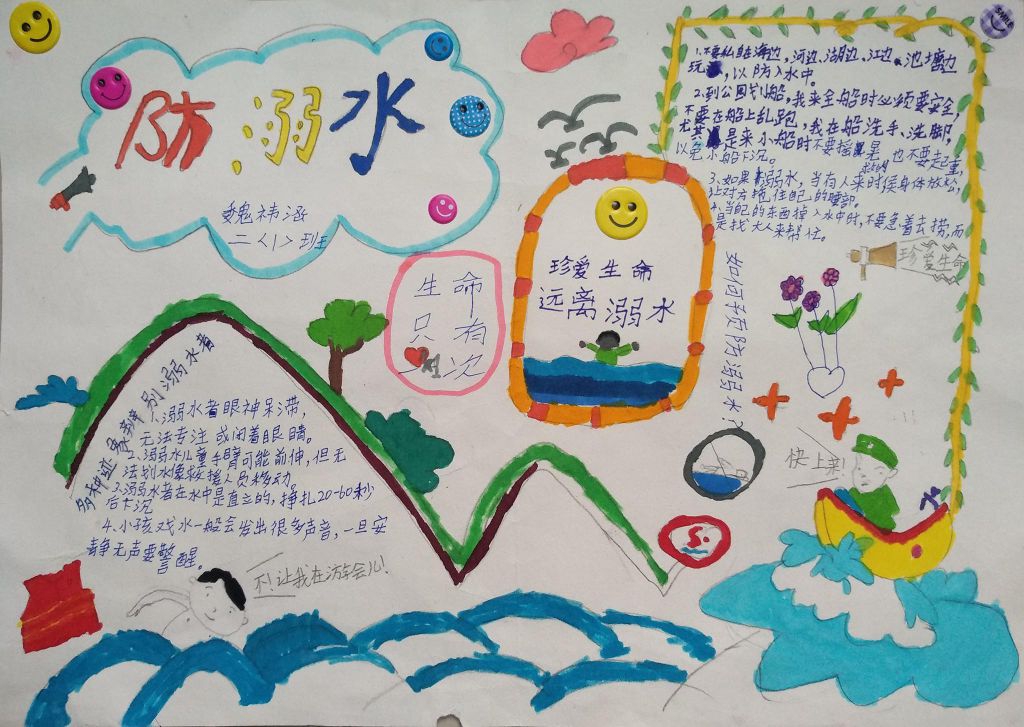 防溺水
魏祎涵
二〈1〉班
生命
只有
一次
珍爱生命
远离溺水
如何预防溺水?
1.不要私自在海边,河边、湖边、江边、池塘边
玩,以防入水中。
2.到公园划船,我来坐船时必须要安全,
不要在船上乱跑,我在船洗手、洗脚,
尤其是来小船时不要摇晃 也不要起重,
以免小船下沉。
3.如果溺水,当有人来救时候身体放松,
让对方拖住自己的腰部。
4.当自己的东西掉入水中时,不要急着去捞,而
是找大人来帮忙。
珍爱生命
多种迹象辨别溺水者
1.溺水者眼神呆滞,
无法专注或闭着眼睛。
2.溺水儿童手臂可能前伸,但无
法划水像救援人员移动。
3.溺水者在水中是直立的,挣扎20-60秒
后下沉
4.小孩戏水一般会发出很多声音,一旦安
静无声要警醒。
不!让我在游会儿!
快上来!
SMILE